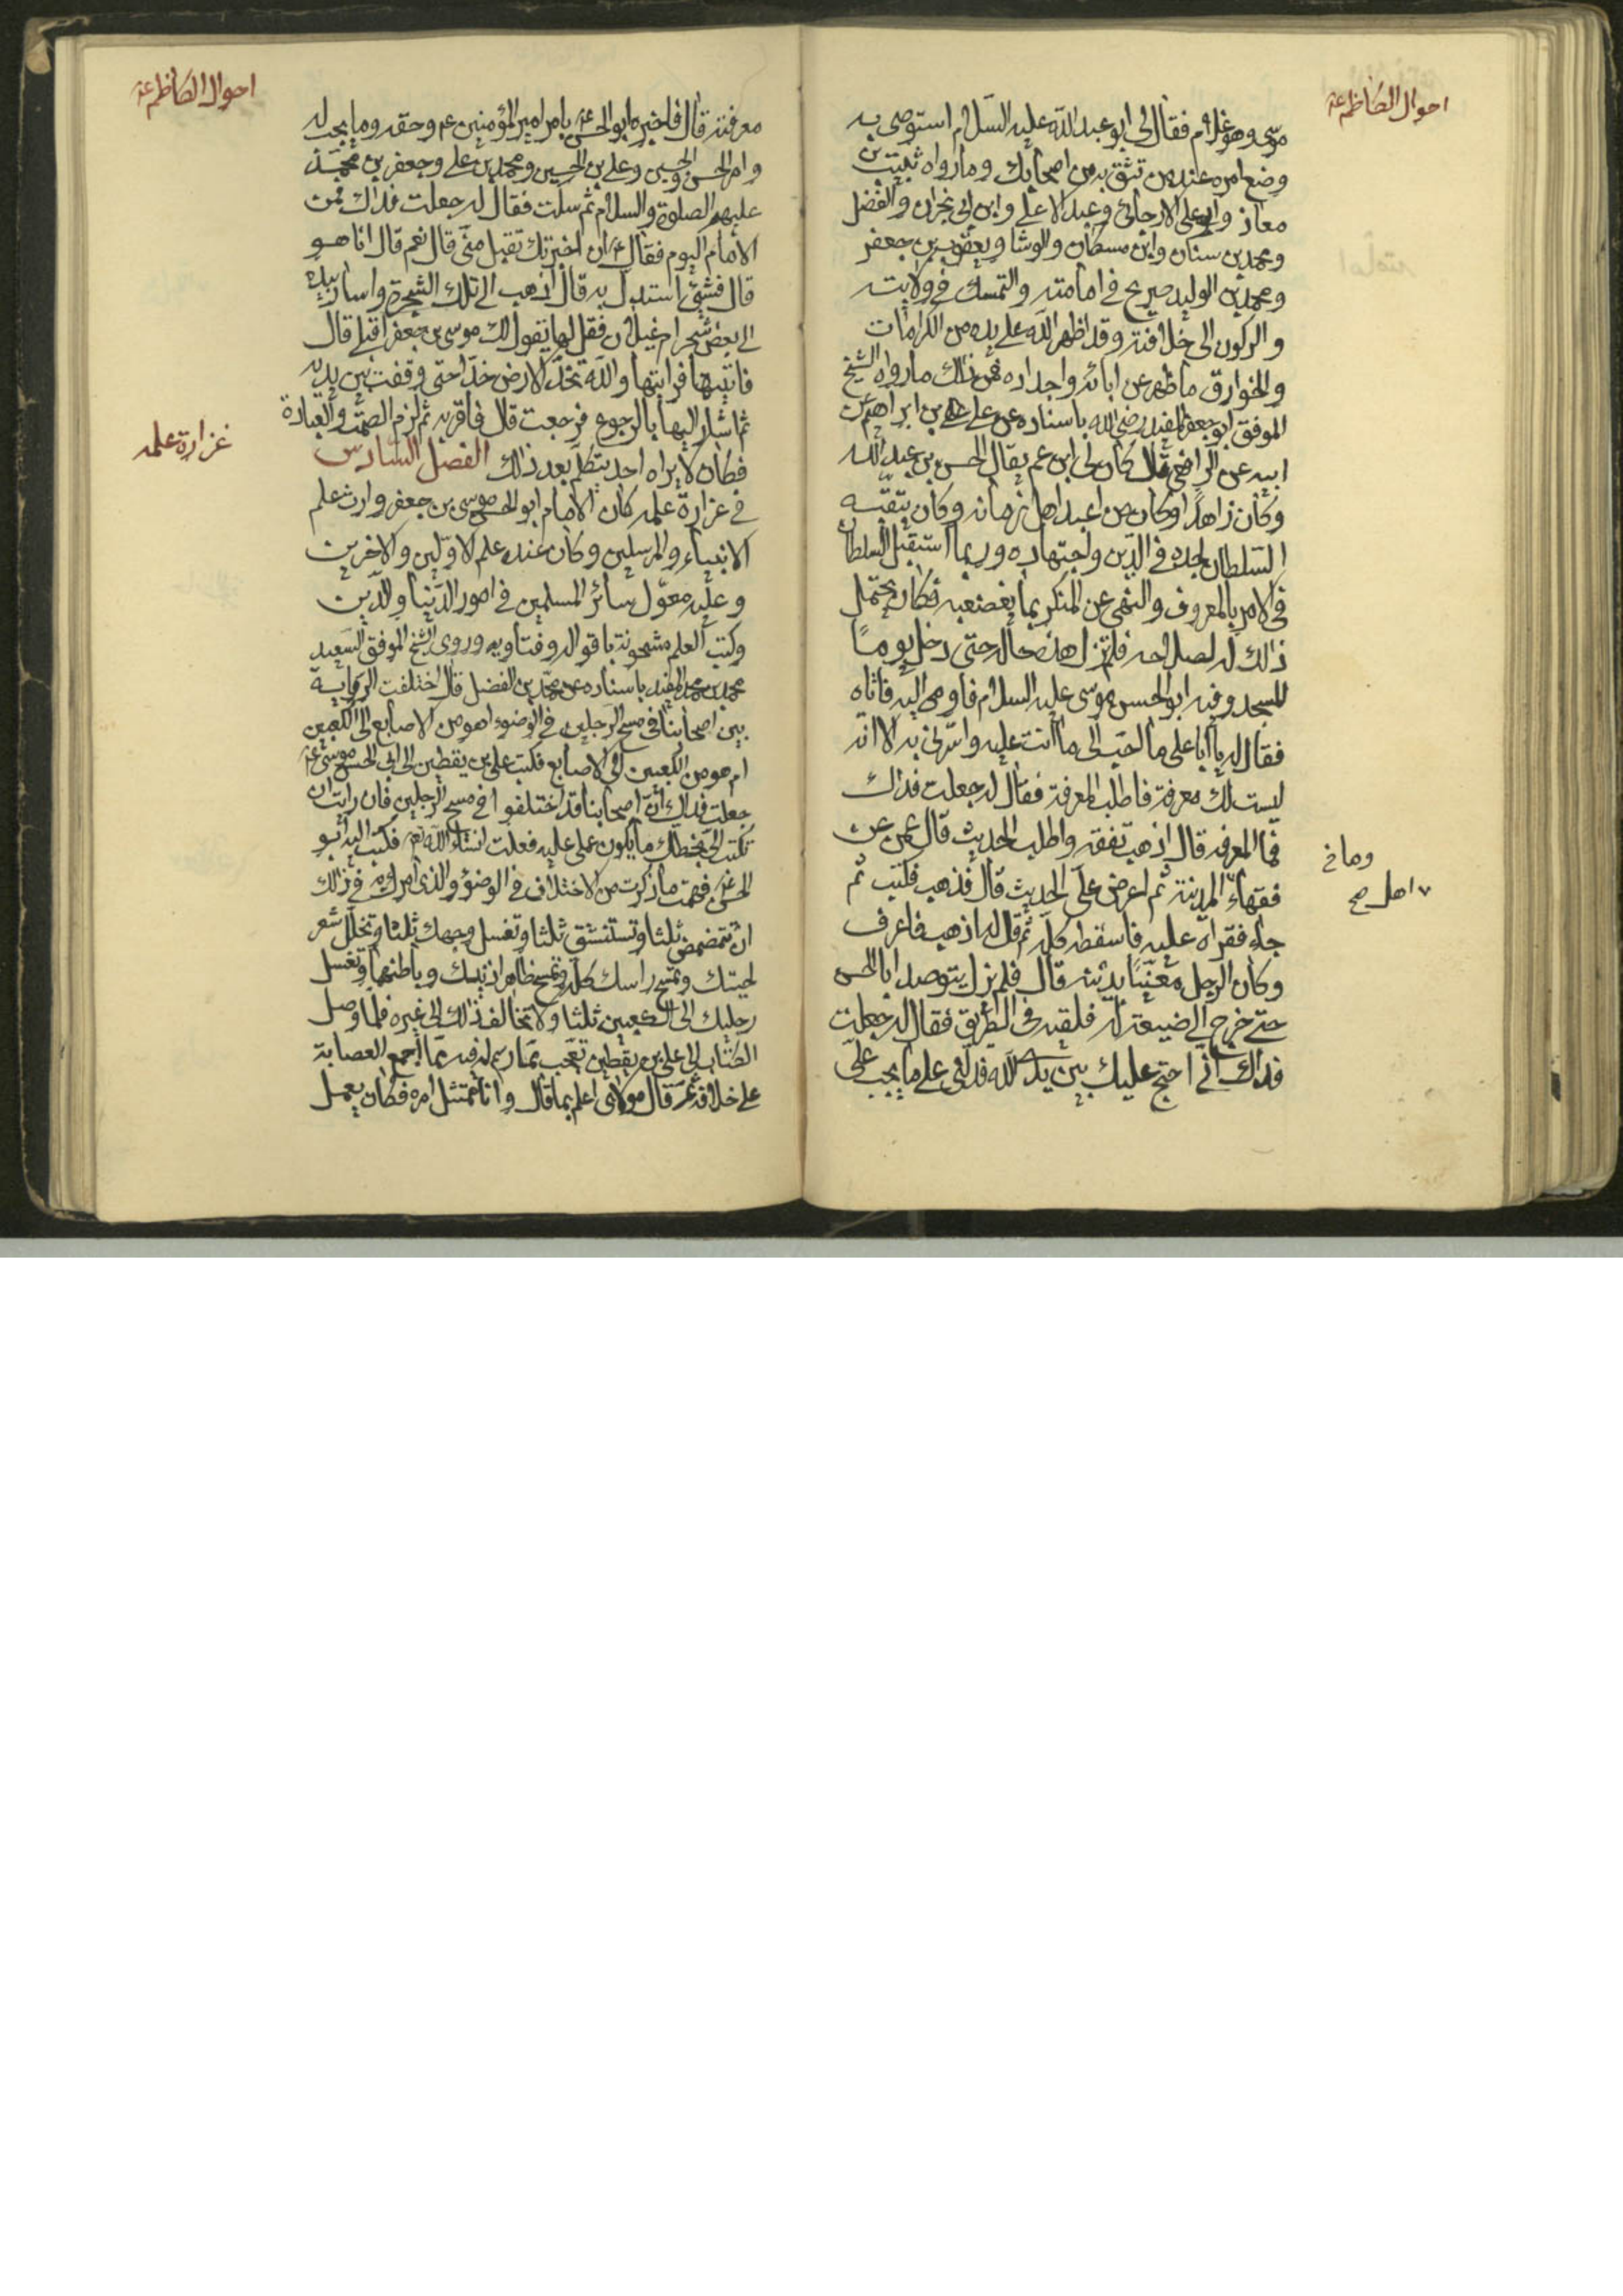 احوال الكاظم ع
موسى وهو غلام فقال لى ابو عبد الله عليه السلام استوصى به
وضع امره عند من تثق به من اصحابك وما رواه ثبيت بن
معاذ وابو على الارجانى وعبد الاعلى وابن ابى نجران والفضل
ومحمد بن سنان وابن مسكان والوشا ويعقوب بن جعفر
ومحمد بن الوليد صريح فى امامته والتمسك فى ولايته
والركون الى خلافته وقد اظهر الله على يده من الكرامات
والخوارق ما ظهر عن ابائه واجداده فمن ذلك ما رواه الشيخ
الموفق ابو جعفر المفيد رضى الله باسناده عن على بن ابراهيم عن
ابيه عن الرافعى قال كان لى ابن عم يقال الحسن بن عبد الله
وكان زاهدًا وكان من اعبد اهل زمانه وكان يتقيه
السلطان لجده فى الدين واجتهاده وربما استقبل السلطان
فى الامر بالمعروف والنهى عن المنكر بما يغضبه فكان يحتمل
ذلك له لصلاحه فلم تزل هذه حاله حتى دخل يومًا
المسجد وفيه ابو الحسن موسى عليه السلام فاومى اليه فاتاه
فقال له يا ابا على ما احب الى ما انت عليه واسرنى به الا انه
ليست لك معرفة فاطلب المعرفة فقال له جعلت فداك
وما فى
فما المعرفة قال اذهب تفقه واطلب الحديث قال عمن عن
٧ اهل صح
فقهاء المدينة ثم اعرض على الحديث قال فذهب فكتب ثم
جاء فقراه عليه فاسقطه كله ثم قال له اذهب فاعرف
وكان الرجل معنيًا بدينه قال فلم يزل يترصد ابا الحسن
حتى خرج الى ضيعة له فلقيه فى الطريق فقال له جعلت
فداك انى احتج عليك بين يدى الله فدلنى على ما يجب على
احوال الكاظم ع
معرفته قال فاخبره ابو الحسن ع بامر امير المؤمنين ع م وحقه وما يجب له
وامر الحسن والحسين وعلى بن الحسين ومحمد بن على وجعفر بن محمد
عليهم الصلوة والسلام ثم سكت فقال له جعلت فداك فمن
الامام اليوم فقال ع ان اخبرتك تقبل منى قال نعم قال انا هو
قال فشئ استدل به قال اذهب الى تلك الشجرة واشار بيده
الى بعض شجر ام غيلان فقل لها يقول لك موسى بن جعفر اقبلى قال
فاتيتها فرايتها والله تخد الارض خدّا حتى وقفت بين يديه
ثم اشار اليها بالرجوع فرجعت قال فاقر به ثم لزم الصمت والعبادة
غزارة علمه
فكان لا يراه احد يتكلم بعد ذلك الفصل السادس
فى غزارة علمه كان الامام ابو الحسن موسى بن جعفر وارث علم
الانبياء والمرسلين وكان عنده علم الاولين والاخرين
وعليه معول سائر المسلمين فى امور الدنيا والدين
وكتب العلم مشحونة باقواله وفتاويه وروى الشيخ الموفق السعيد
محمد بن محمد المفيد باسناده عن محمد بن الفضل قال اختلفت الرواية
بين اصحابنا فى مسح الرجلين فى الوضوء اهو من الاصابع الى الكعبين
ام هو من الكعبين الى الاصابع فكتب على بن يقطين الى ابى الحسن موسى ع
جعلت فداك ان اصحابنا قد اختلفوا فى مسح الرجلين فان رايت ان
تكتب الى بخطك ما يكون عملى عليه فعلت انشاء الله تع فكتب اليه ابو
الحسن ع فهمت ما ذكرت من الاختلاف فى الوضوء والذى امرك به فى ذلك
ان تتمضمض ثلثا وتستنشق ثلثا وتغسل وجهك ثلثا وتخلل شعر
لحيتك وتمسح راسك كله وتمسح ظاهر اذنيك وباطنهما وتغسل
رجليك الى الكعبين ثلثا ولا تخالف ذلك الى غيره فلما وصل
الكتاب الى على بن يقطين تعجب بما رسم له فيه مما اجمع العصابة
على خلافه ثم قال مولاى اعلم بما قال وانا ممتثل امره فكان يعمل